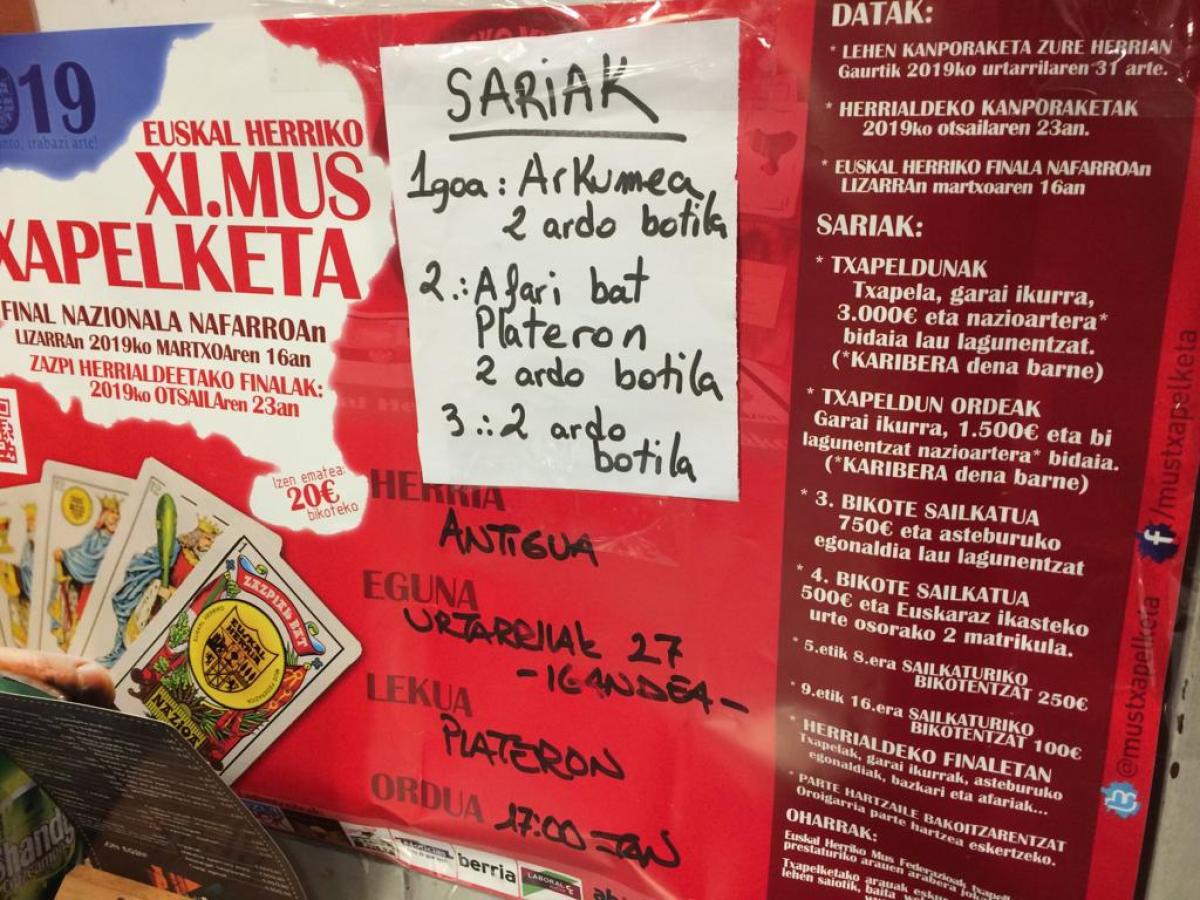 2019
irabazi arte!
EUSKAL HERRIKO
XI.MUS
TXAPELKETA
FINAL NAZIONALA NAFARROAn
LIZARRAn 2019ko MARTXOAren 16an
ZAZPI HERRIALDEETAKO FINALAK:
2019ko OTSAILAren 23an
Izen ematea:
20€
bikoteko
ZAZPIAK BAT
SARIAK
1goa: Arkumea,
2 ardo botila
2.: Afari bat
Plateron
2 ardo botila
3.: 2 ardo
botila
HERRIA
ANTIGUA
EGUNA
URTARRILAK 27
-IGANDEA-
LEKUA
PLATERON
ORDUA 17:00-TAN
berria
LABORAL
Shandy
DATAK:
* LEHEN KANPORAKETA ZURE HERRIAN
Gaurtik 2019ko urtarrilaren 31 arte.
* HERRIALDEKO KANPORAKETAK
2019ko otsailaren 23an.
* EUSKAL HERRIKO FINALA NAFARROAn
LIZARRAn martxoaren 16an
SARIAK:
* TXAPELDUNAK
Txapela, garai ikurra,
3.000€ eta nazioartera*
bidaia lau lagunentzat.
(*KARIBERA dena barne)
* TXAPELDUN ORDEAK
Garai ikurra, 1.500€ eta bi
lagunentzat nazioartera* bidaia.
(*KARIBERA dena barne)
* 3. BIKOTE SAILKATUA
750€ eta asteburuko
egonaldia lau lagunentzat
* 4. BIKOTE SAILKATUA
500€ eta Euskaraz ikasteko
urte osorako 2 matrikula.
* 5.etik 8.era SAILKATURIKO
BIKOTENTZAT 250€
* 9.etik 16.era SAILKATURIKO
BIKOTENTZAT 100€
* HERRIALDEKO FINALETAN
Txapelak, garai ikurrak, asteburuko
egonaldiak, bazkari eta afariak...
* PARTE HARTZAILE BAKOITZARENTZAT
Oroigarria parte hartzea eskertzeko.
OHARRAK:
Euskal Herriko Mus Federazioak
prestaturiko arauen arabera
Txapelketako arauak
lehen saiotik, baita
f/mustxapelketa
@mustxapelketa